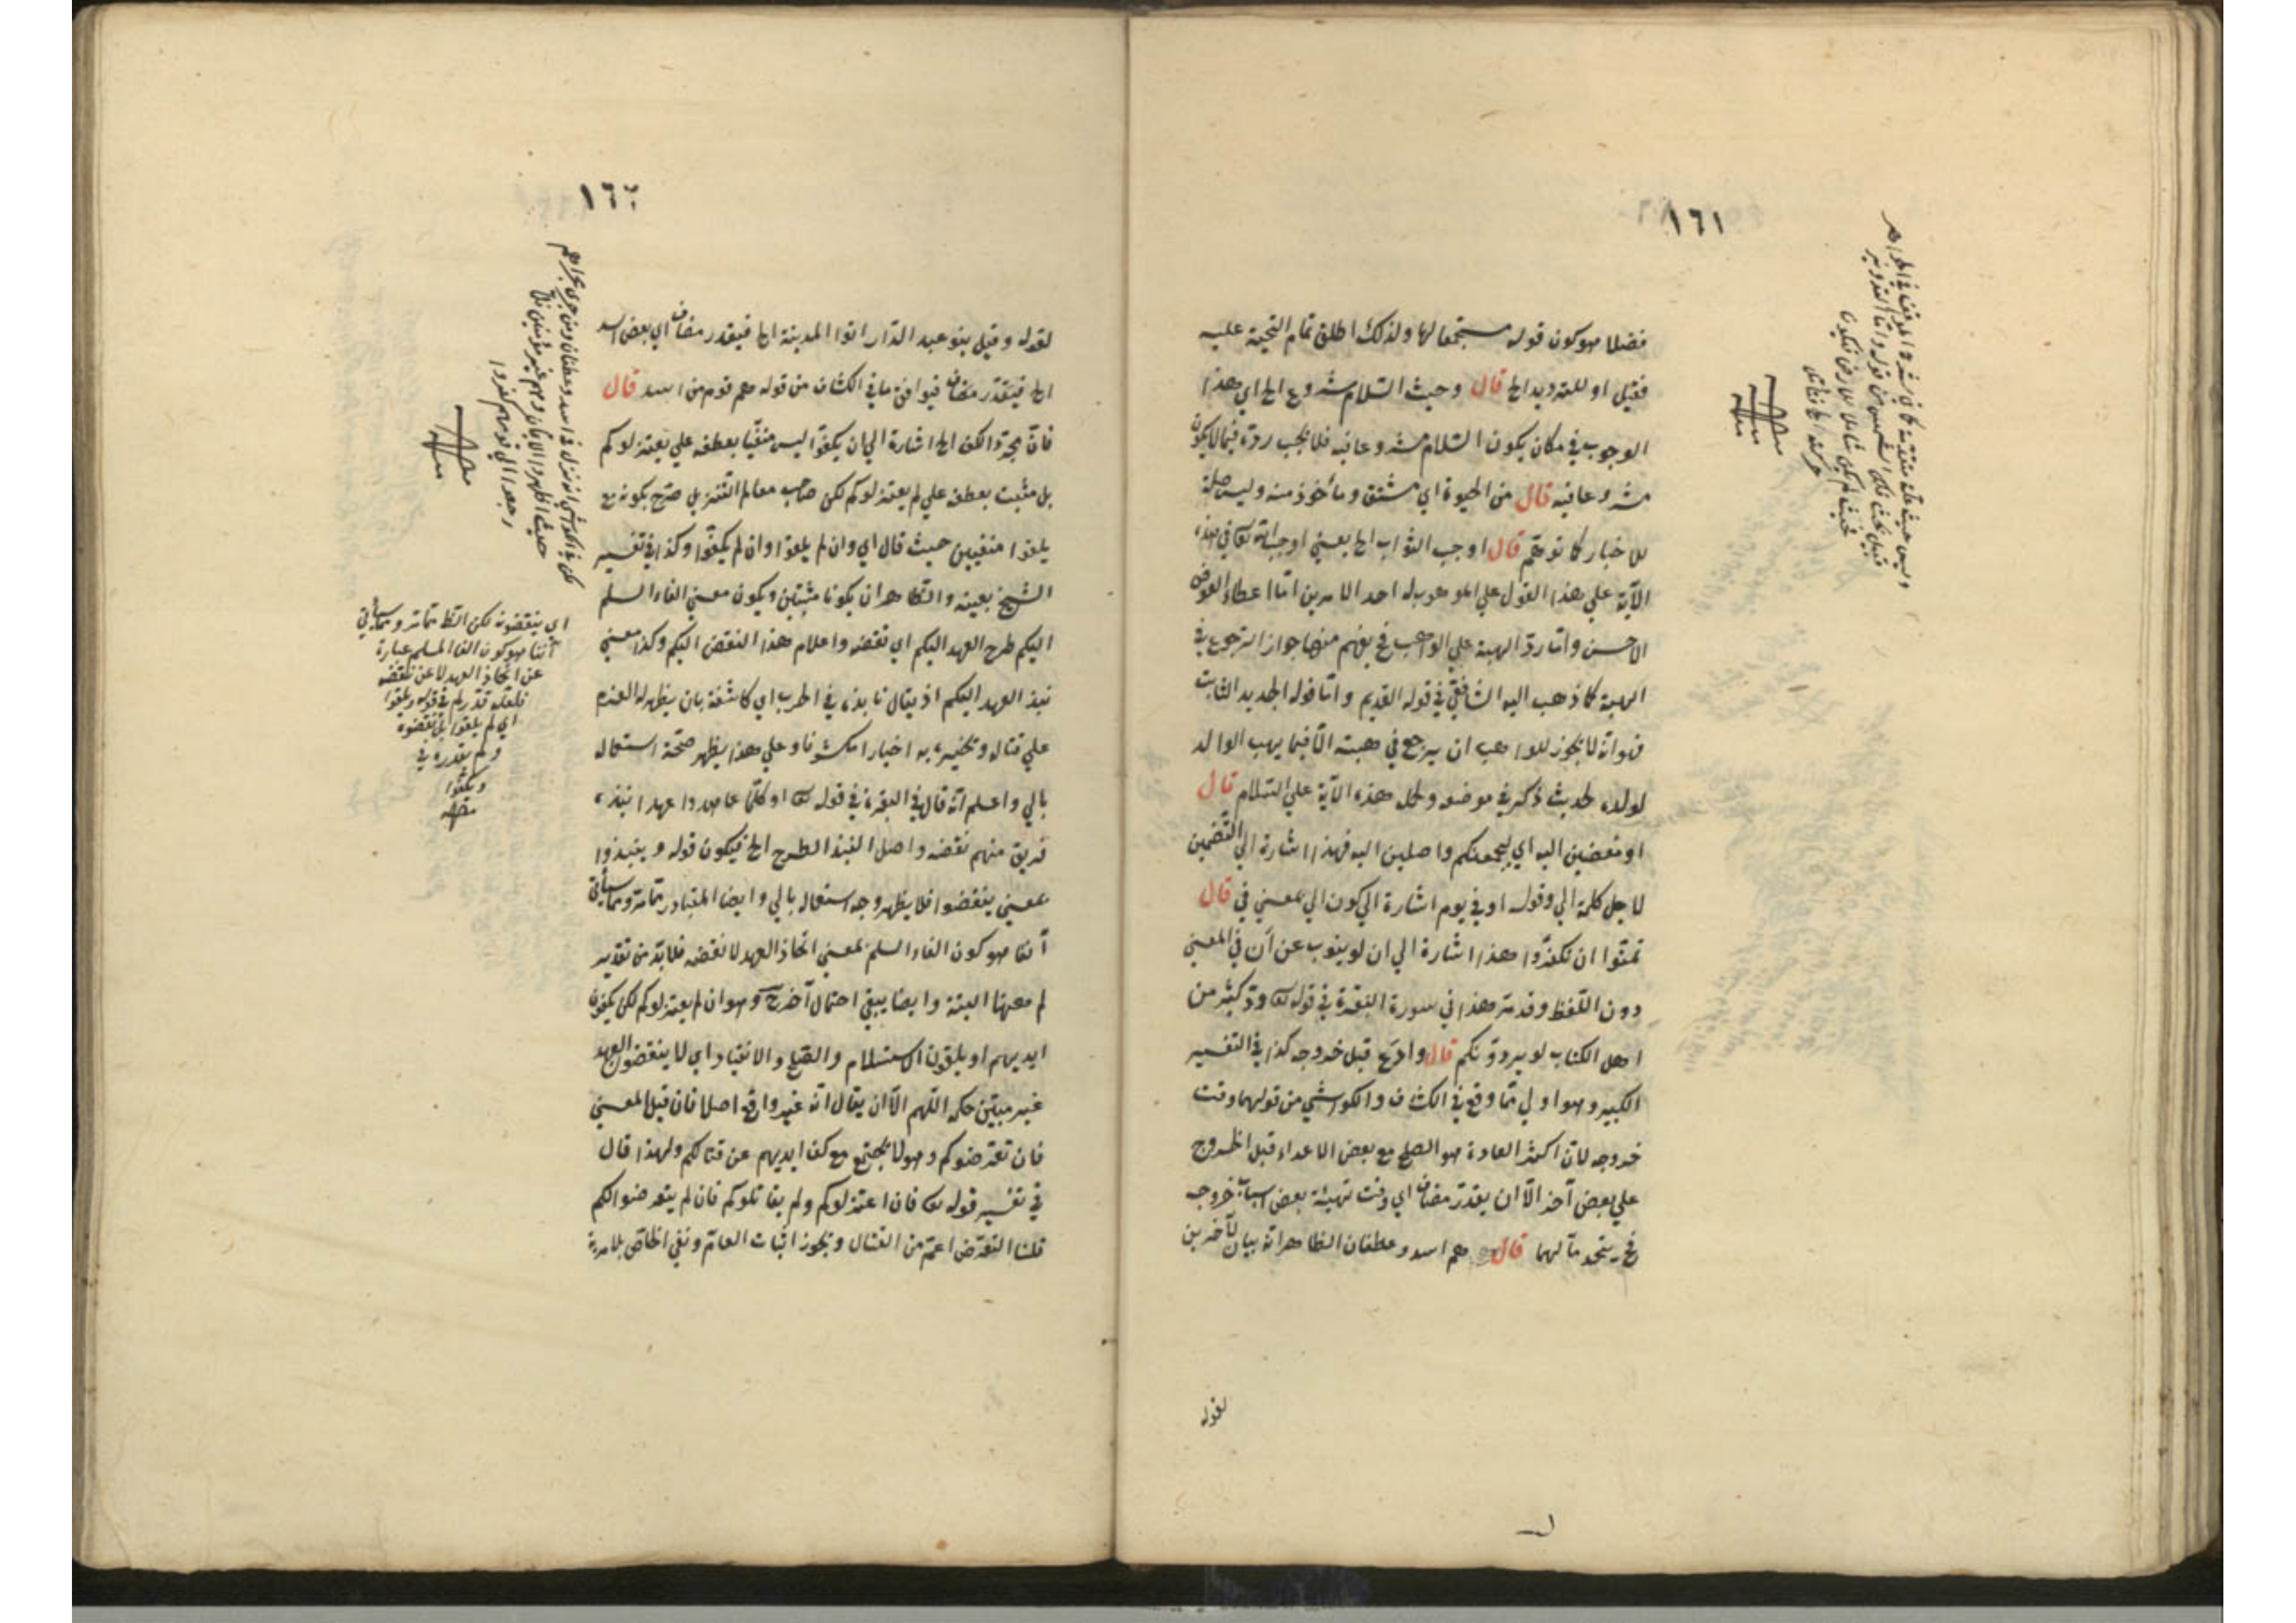 ١٦١
فضلا هو كون قوله مستجمعا لها ولذلك اطلق تمام التحية عليه
فقيل او للترديد الخ قال وحيث السلام مشروع الخ اي هذا
الوجوب في مكان يكون السلام مشروعا فيه فلا يجب رده فيما لا يكون
مشروعا فيه قال من الحيوة اي مشتق ومأخوذ منه وليس صلة
للاخبار كما توهم قال اوجب الثواب الخ يعني اوجب الله تعا في هذه
الآية علي هذا القول علي الموهوب له احد الامرين اما اعطاء العوض
الاحسن واما رد الهبة علي الواهب فح يفهم منها جواز الرجوع في
الهبة كما ذهب اليه الشافعي في قوله القديم واما قوله الجديد الثابت
فهو انه لا يجوز للواهب ان يرجع في هبته الا فيما يهب الوالد
لولده لحديث ذكر في موضعه ولحمل هذه الآية علي السلام قال
او مفضين اليه اي ليجمعنكم واصلين اليه فهذا اشارة الي التضمين
لاجل كلمة الي وقوله او في يوم اشارة الي كون الي بمعني في قال
تمنوا ان تكفروا هذا اشارة الي ان لو ينوب عن أن في المعني
دون اللفظ وقد مر هذا في سورة البقرة في قوله تعا ود كثير من
اهل الكتاب لو يردونكم قال وادع قبل خروجه كذا في التفسير
الكبير وهو اولي مما وقع في الكشاف والكواشي من قولهما وقت
خروجه لان اكثر العادة هو الصلح مع بعض الاعداء قبل الخروج
علي بعض آخر الا ان يقدر مضاف اي وقت تهيئة بعض اسباب خروجه
فح يتحد مآلهما قال هم اسد وغطفان الظاهر انه بيان لآخرين
لقوله
١٦٢
لقوله وقيل بنو عبد الدار اتوا المدينة الخ فيقدر مضاف اي بعض اسد
الخ فيقدر مضاف فيوافق ما في الكشاف من قوله هم قوم من اسد قال
فان مجرد الكف الخ اشارة الي ان يكفوا ليس منفيا بعطفه علي يعتزلوكم
بل مثبت بعطفه علي لم يعتزلوكم لكن صاحب معالم التنزيل صرح بكونه مع
يلقوا منفيين حيث قال اي وان لم يلقوا وان لم يكفوا وكذا في تفسير
الشيخ بعينه والظاهر ان يكونا مثبتين ويكون معني القاء السلم
اليكم طرح العهد اليكم اي نقضه واعلام هذا النقض اليكم وكذا معني
نبذ العهد اليكم اذ يقال نابذه في الحرب اي كاشفه بان يظهر له العزم
علي قتاله وتخبيره به اخبارا مكشوفا وعلي هذا يظهر صحة استعماله
بالي واعلم انه قال في البقرة في قوله تعا او كلما عاهدوا عهدا نبذه
فريق منهم نقضه واصل النبذ الطرح الخ فيكون قوله وينبذوا
بمعني ينقضوا فلا يظهر وجه استعماله بالي وايضا المتبادر مما مر ومما سيأتي
آنفا هو كون القاء السلم بمعني اتخاذ العهد لا نقضه فلا بد من تقدير
لم ههنا البتة وايضا يبقي احتمال آخر ح وهو ان لم يعتزلوكم لكن يكفون
ايديهم او يلقون الاستسلام والصلح والانقياد اي لا ينقضون العهد
غير مبين حكمه اللهم الا ان يقال انه غير واقع اصلا فان قيل المعني
فان تعرضوكم وهو لا يجتمع مع كف ايديهم عن قتالكم ولهذا قال
في تفسير قوله تعا فان اعتزلوكم ولم يقاتلوكم فان لم يتعرضوا لكم
قلنا التعرض اعم من القتال ويجوز اثبات العام ونفي الخاص بلا مرية
لكن في الكواشي انه نزل في اسد وغطفان ومن جري مجراهم
حيث اظهروا الايمان وهم غير مؤمنين
رجعوا الي قومهم كفروا
اي ينقضونه لكن الظ مما مر ومما سيأتي
آنفا هو كون القاء السلم عبارة
عن اتخاذ العهد لا عن نقضه
فلعله قدر لم في قوله ويلقوا
اي لم يلقوا
ولم يقدره في
ويكفوا
منه